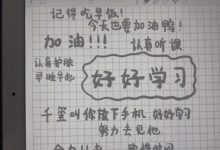 记得吃早饭!
今天也要加油鸭!
加油!!!
认真听课
认真护肤
早睡早起
好好学习
千玺叫你放下手机 好好学习
努力去见他